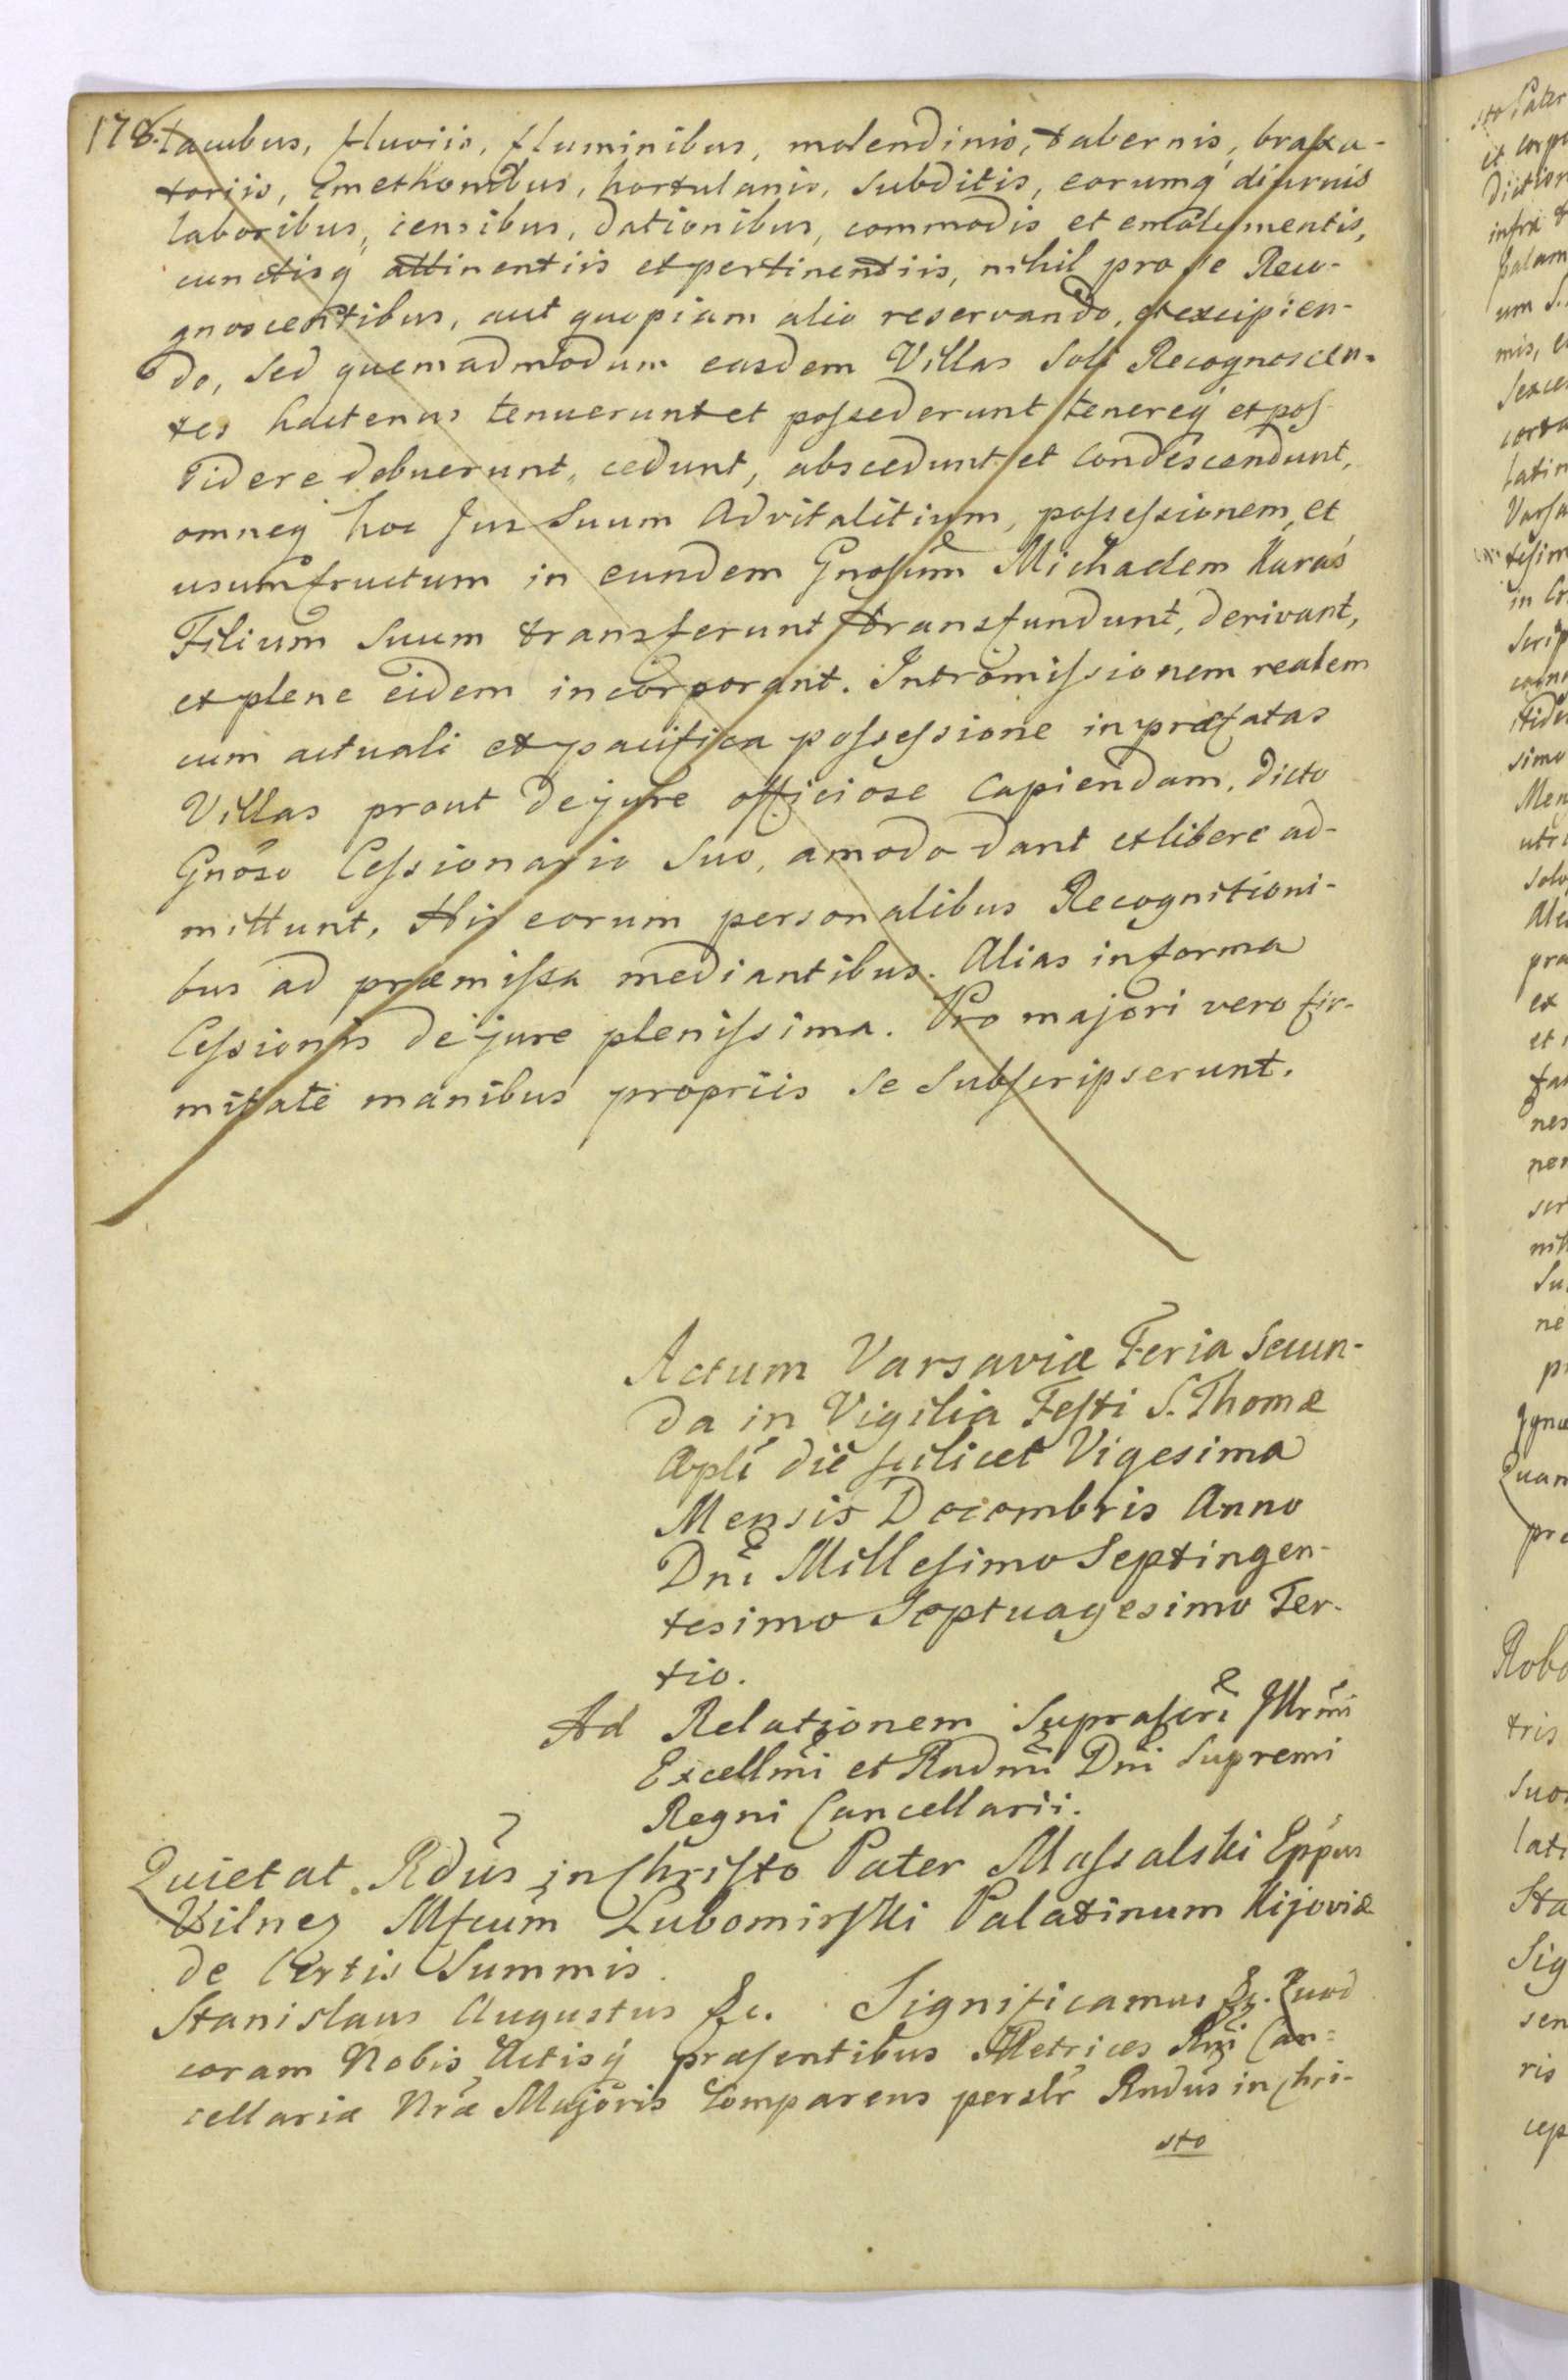 178.
lacubus, fluviis, fluminibus, molendinis, tabernis, braxa-
toriis, Cmethonibus, hortulanis, Subditis, eorumq́ diurnis
laboribus, censibus, dationibus, commodis et emolumentis,
cunctisq́ attinentiis et pertinentiis, nihil pro se Reco-
gnoscentibus, aut quopiam alio reservando, et excipien-
do, Sed quemadmodum easdem Villas Soli Recognoscen-
tes hactenus tenuerunt et possederunt tenereq́ et pos-
sidere debuerunt, cedunt, abscedunt et Condescendunt,
omneq́ hoc Jus Suum Advitalitium, possessionem, et
usumfructum in eundem Gnosum Michaelem Karaś
Filium Suum transferunt transfundunt, derivant,
et plene eidem incorporant. Intromissionem realem
cum actuali et pacifica possessione in præfatas
Villas prout de jure officiose Capiendam, dicto
Gnoso Cessionario Suo, amodo dant et libere ad-
mittunt. His eorum personalibus Recognitioni-
bus ad præmissa mediantibus. Alias in forma
Cessionis de jure plenissima. Pro majori vero fir-
mitate manibus propriis se Subscripserunt.
Actum Varsaviæ Feria Secun-
da in Vigilia Festi S. Thomæ
Apli die scilicet Vigesima
Mensis Decembris Anno
Dni Millesimo Septingen-
tesimo Septuagesimo Ter-
tio.
Ad Relationem Suprascri Illrmi
Excellmi et Rndmi Dni Supremi
Regni Cancellarii.
Quietat Rdus in Christo Pater Massalski Eppus
Vilnen Mfcum Lubomirski Palatinum Kijoviæ
de Certis Summis.
Stanislaus Augustus &c. Significamus &c. Quod
coram Nobis Actisq́ præsentibus Metrices Rni Can=
cellariæ Nræ Majoris Comparens persler Rndus in Chri-
sto